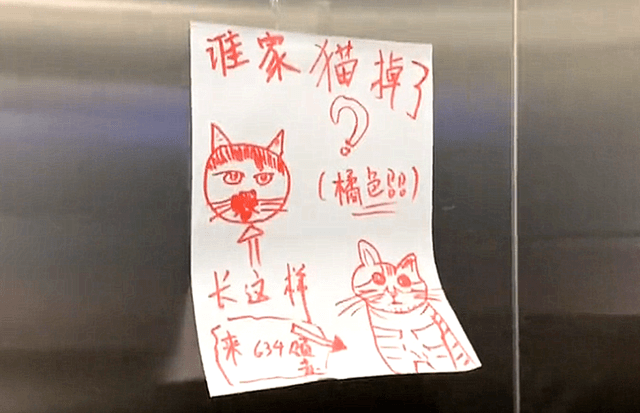 谁家猫掉了
?
(橘色!!)
长这样
来634领